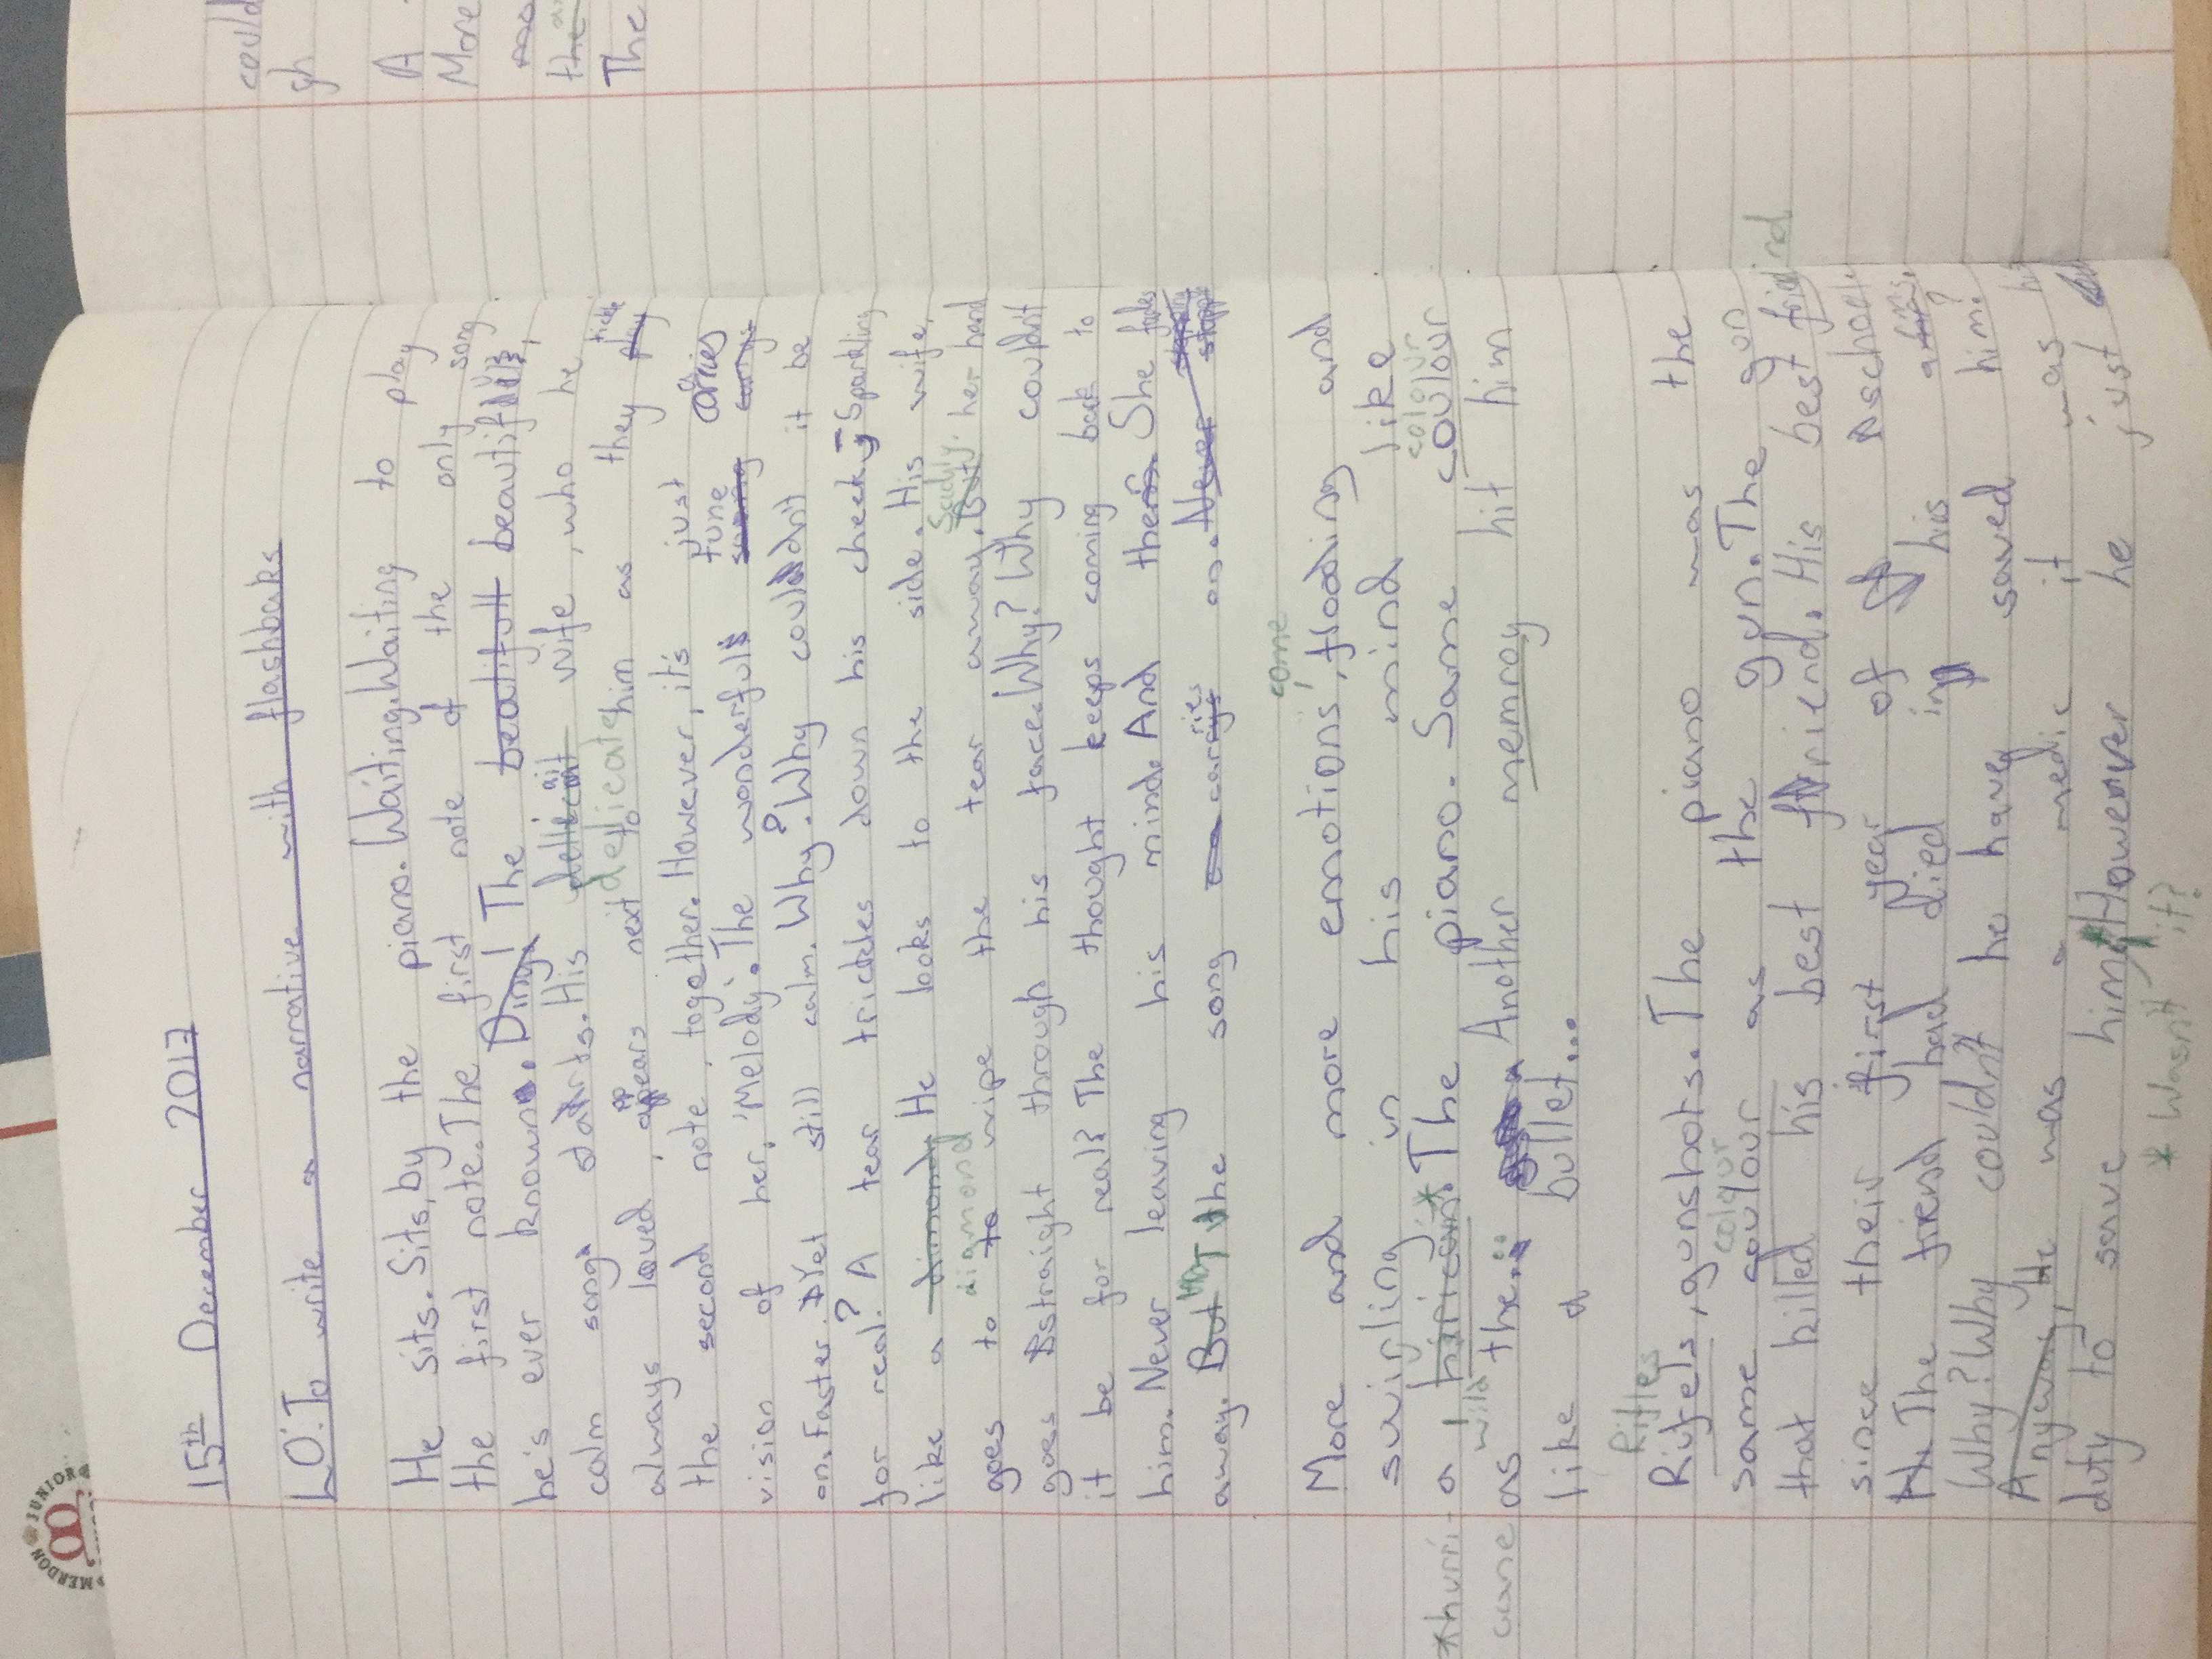 15th December 2017
L.O: To write a narrative with flashbaks
He sits. Sits, by the piano. Waiting. Waiting to play
the first note. The first note of the only song
he's ever known. Ding! The beatifull beautiful,
calm song starts. His dellicait wife, who he
delicate
always loved, appears next to him as they play
tickle
the second note, together. However, it's just a
vision of her, 'Melody'. The wonderful tune carries
on. Faster. Yet still calm. Why? Why couldn't it be
for real? A tear trickles down his cheek - Sparkling
like a dimond He looks to the side. His wife,
diamond
goes to to wipe the tear away. But her hand
Sadly,
goes straight through his face. Why? Why couldn't
it be for real? The thought keeps coming back to
him. Never leaving his mind. And then She fades
away. But the song carries on. Never stops
More and more emotions, flooding and
come
swirling in his mind like
a hiricain.* The piano. Same coulour
*hurri-
cane
wild
colour
as then. Another memray hit him
like a bullet...
Rifles
Rifels, gunshots. The piano was the
same coulour as the gun. The gun
colour
that killed his best friend. His best friend
since their first year of school.
The frend had died in his arms.
Why? Why couldn't he have saved him?
Anyway, He was a medic it was his
duty to save him However he just
* Wasn't it?
could
gh
A
More
The
MERDON JUNIOR